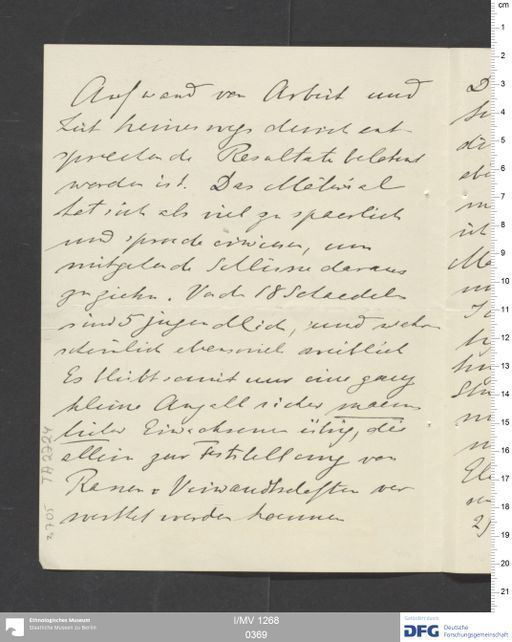 Aufwand von Arbeit und
Zeit keineswegs durch ent-
sprechende Resultate belohnt
worden ist. Das Material
hat sich als viel zu spaerlich
und sproede erwiesen, um
mitgehende Schlüsse daraus
zu ziehn. Von den 18 Schaedeln
sind 5 jugendlich, und wahr
scheinlich ebensoviel weiblich
Es bleibt somit nur eine ganz
kleine Anzahl sicher maenn
licher Erwachsener übrig, die
allein zur Feststellung von
Rassen u Verwandtschaften ver
werthet werden koennen
TA 2224
2705
cm
1
2
3
4
5
6
7
8
9
10
11
12
13
14
15
16
17
18
19
20
21
Ethnologisches Museum
Staatliche Museen zu Berlin
I/MV 1268
0369
Gefördert durch
DFG Deutsche
Forschungsgemeinschaft